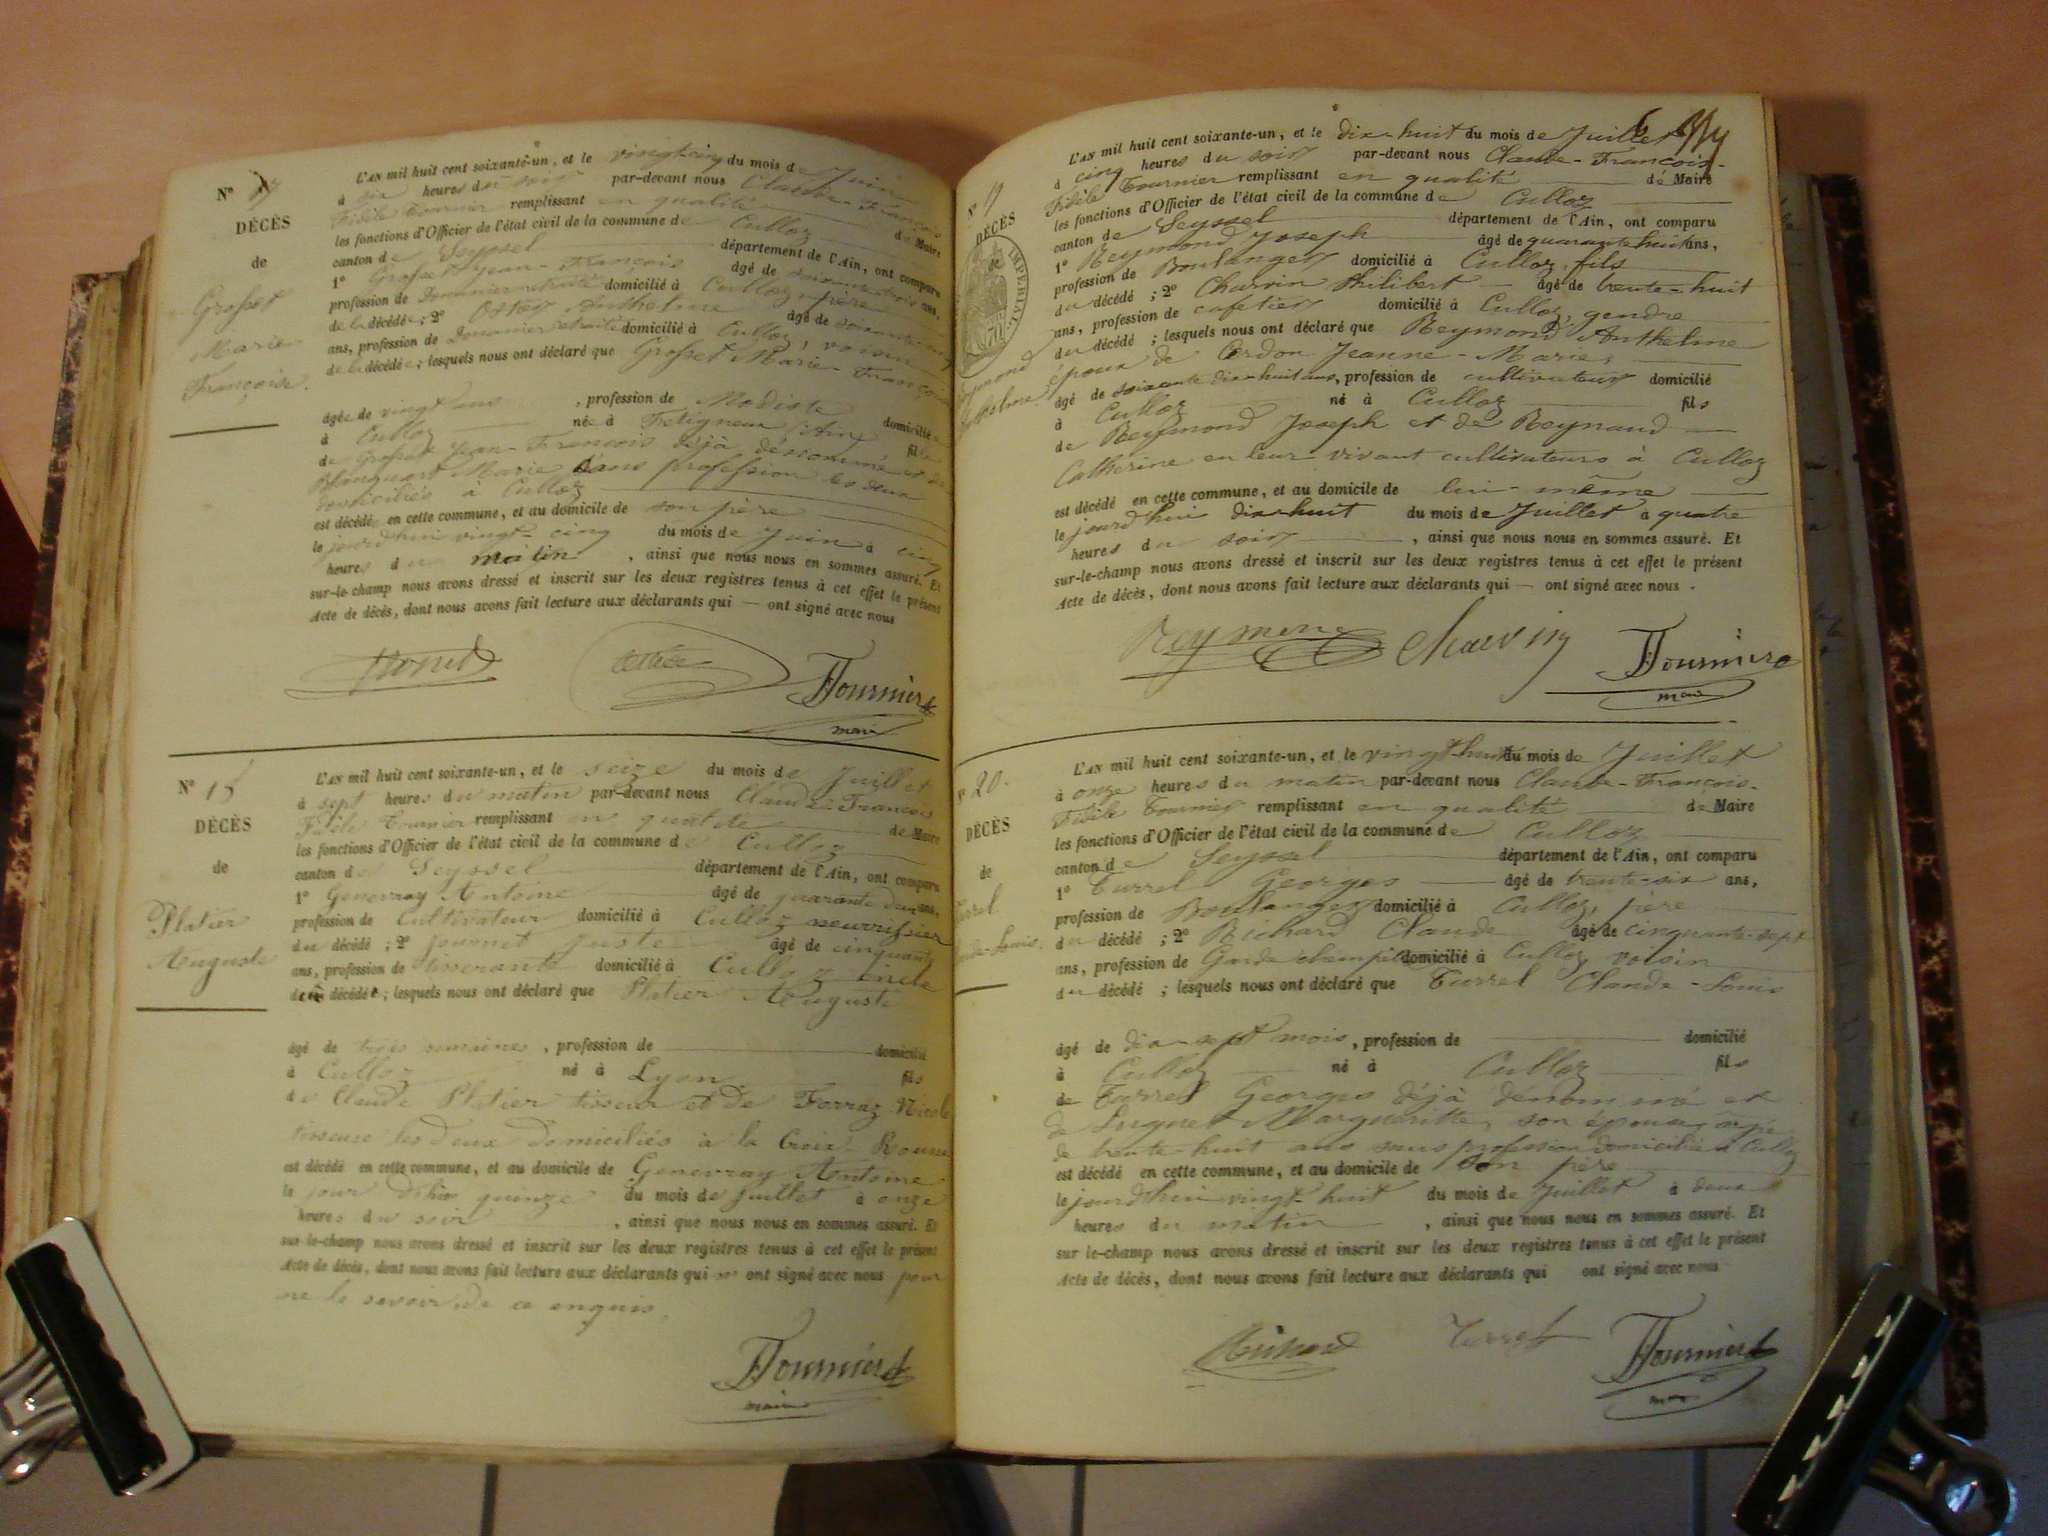 N° 17
DÉCÈS
de
Grosset
Marie
Françoise.
L'AN mil huit cent soixante-un, et le vingt-cinq du mois de Juin
à six heures du soir par-devant nous Claude-François
Fidèle Tournier remplissant en qualité de Maire
les fonctions d'Officier de l'état civil de la commune de Culloz
canton de Seyssel département de l'Ain, ont comparu
1° Grosset Jean-François âgé de ans,
profession de Douanier retraité domicilié à Culloz, père
de la décédée ; 2° Anthelme âgé de
ans, profession de Douanier retraité domicilié à Culloz, voisin
de la décédée ; lesquels nous ont déclaré que Grosset Marie Françoise
âgée de vingt ans , profession de Modiste domiciliée
à Culloz née à (Ain) fille
de Grosset Jean-François déjà dénommé et de
Marie sans profession les deux
domiciliés à Culloz
est décédée en cette commune, et au domicile de son père
le jourd'hui vingt-cinq du mois de Juin à cinq
heures du matin , ainsi que nous nous en sommes assuré. Et
sur-le-champ nous avons dressé et inscrit sur les deux registres tenus à cet effet le présent
Acte de décès, dont nous avons fait lecture aux déclarants qui — ont signé avec nous
Tournier
maire
N° 18
DÉCÈS
de
Platier
Auguste
L'AN mil huit cent soixante-un, et le seize du mois de Juillet
à sept heures du matin par-devant nous Claude François
Fidèle Tournier remplissant en qualité de Maire
les fonctions d'Officier de l'état civil de la commune de Culloz
canton de Seyssel département de l'Ain, ont comparu
1° Genevray Antoine âgé de quarante deux ans,
profession de Cultivateur domicilié à Culloz nourrissier
du décédé ; 2° Journet Juste âgé de cinquante
ans, profession de domicilié à Culloz oncle
du décédé ; lesquels nous ont déclaré que Platier Auguste
âgé de trois semaines , profession de domicilié
à Culloz né à Lyon fils
de Claude Platier tisseur et de Ferraz Nicole
tisseuse les deux domiciliés à la Croix-Rousse
est décédé en cette commune, et au domicile de Genevray Antoine
le jour d'hier quinze du mois de Juillet à onze
heures du soir , ainsi que nous nous en sommes assuré. Et
sur-le-champ nous avons dressé et inscrit sur les deux registres tenus à cet effet le présent
Acte de décès, dont nous avons fait lecture aux déclarants qui n' ont signé avec nous pour
ne le savoir de ce enquis.
Tournier
maire
N° 19
DÉCÈS
de
IMPÉRIAL
Reymond
Anthelme
L'AN mil huit cent soixante-un, et le dix-huit du mois de Juillet
à cinq heures du soir par-devant nous Claude-François-
Fidèle Tournier remplissant en qualité de Maire
les fonctions d'Officier de l'état civil de la commune de Culloz
canton de Seyssel département de l'Ain, ont comparu
1° Reymond Joseph âgé de quarante huit ans,
profession de Boulanger domicilié à Culloz, fils
du décédé ; 2° Charvin Philibert âgé de trente-huit
ans, profession de cafetier domicilié à Culloz, gendre
du décédé ; lesquels nous ont déclaré que Reymond Anthelme
époux de Cordon Jeanne-Marie,
âgé de soixante dix-huit ans, profession de cultivateur domicilié
à Culloz né à Culloz fils
de Reymond Joseph et de Reynaud
Catherine en leur vivant cultivateurs à Culloz
est décédé en cette commune, et au domicile de lui-même
le jourd'hui dix-huit du mois de Juillet à quatre
heures du soir , ainsi que nous nous en sommes assuré. Et
sur-le-champ nous avons dressé et inscrit sur les deux registres tenus à cet effet le présent
Acte de décès, dont nous avons fait lecture aux déclarants qui — ont signé avec nous .
Reymond Charvin Tournier
maire
N° 20.
DÉCÈS
de
Turrel
Claude-Louis.
L'AN mil huit cent soixante-un, et le vingt-huit du mois de Juillet
à onze heures du matin par-devant nous Claude-François-
Fidèle Tournier remplissant en qualité de Maire
les fonctions d'Officier de l'état civil de la commune de Culloz
canton de Seyssel département de l'Ain, ont comparu
1° Turrel Georges âgé de trente-six ans,
profession de Boulanger domicilié à Culloz, père
du décédé ; 2° Richard Claude âgé de cinquante-sept
ans, profession de Garde champêtre domicilié à Culloz, voisin
du décédé ; lesquels nous ont déclaré que Turrel Claude-Louis
âgé de dix-sept mois, profession de domicilié
à Culloz né à Culloz fils
de Turrel Georges déjà dénommé et
de Margueritte, son épouse, âgée
de trente-huit ans sans profession domiciliée à Culloz
est décédé en cette commune, et au domicile de son père
le jourd'hui vingt-huit du mois de Juillet à deux
heures du matin , ainsi que nous nous en sommes assuré. Et
sur-le-champ nous avons dressé et inscrit sur les deux registres tenus à cet effet le présent
Acte de décès, dont nous avons fait lecture aux déclarants qui ont signé avec nous
Richard Turrel Tournier
maire